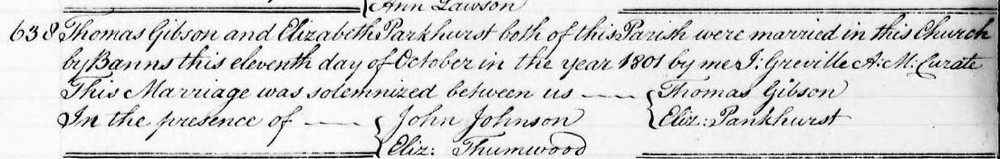 Ann Lawson
638 Thomas Gibson and Elizabeth Parkhurst both of this Parish were married in this Church
by Banns this eleventh day of October in the year 1801 by me J: Greville A: M: Curate
This Marriage was solemnized between us Thomas Gibson
Eliz: Pankhurst
In the presence of John Johnson
Eliz: Thumwood